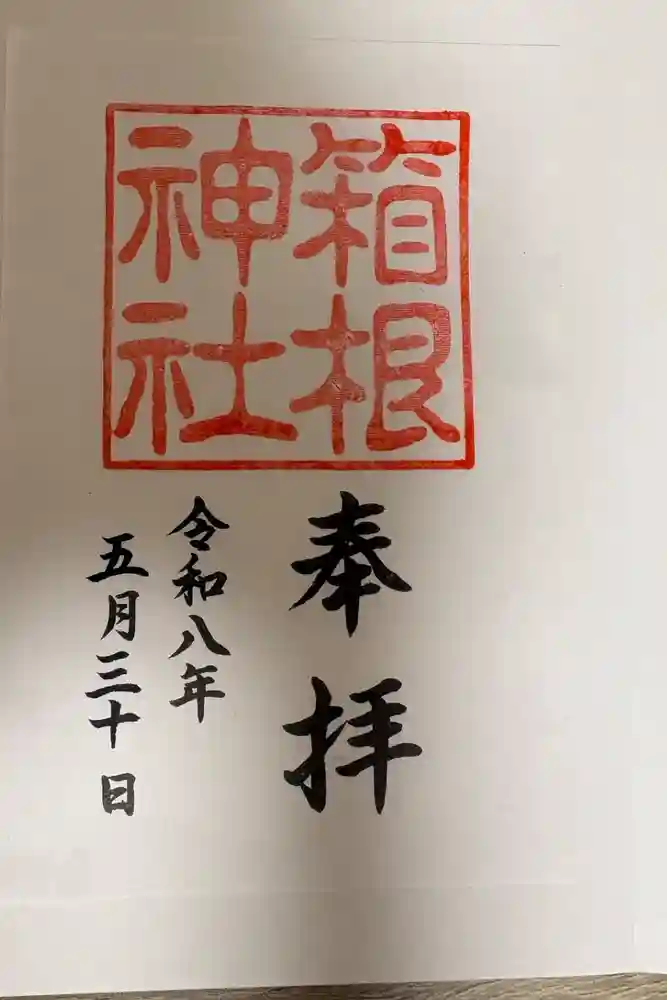 箱根
神社
奉拝
令和八年
五月三十日